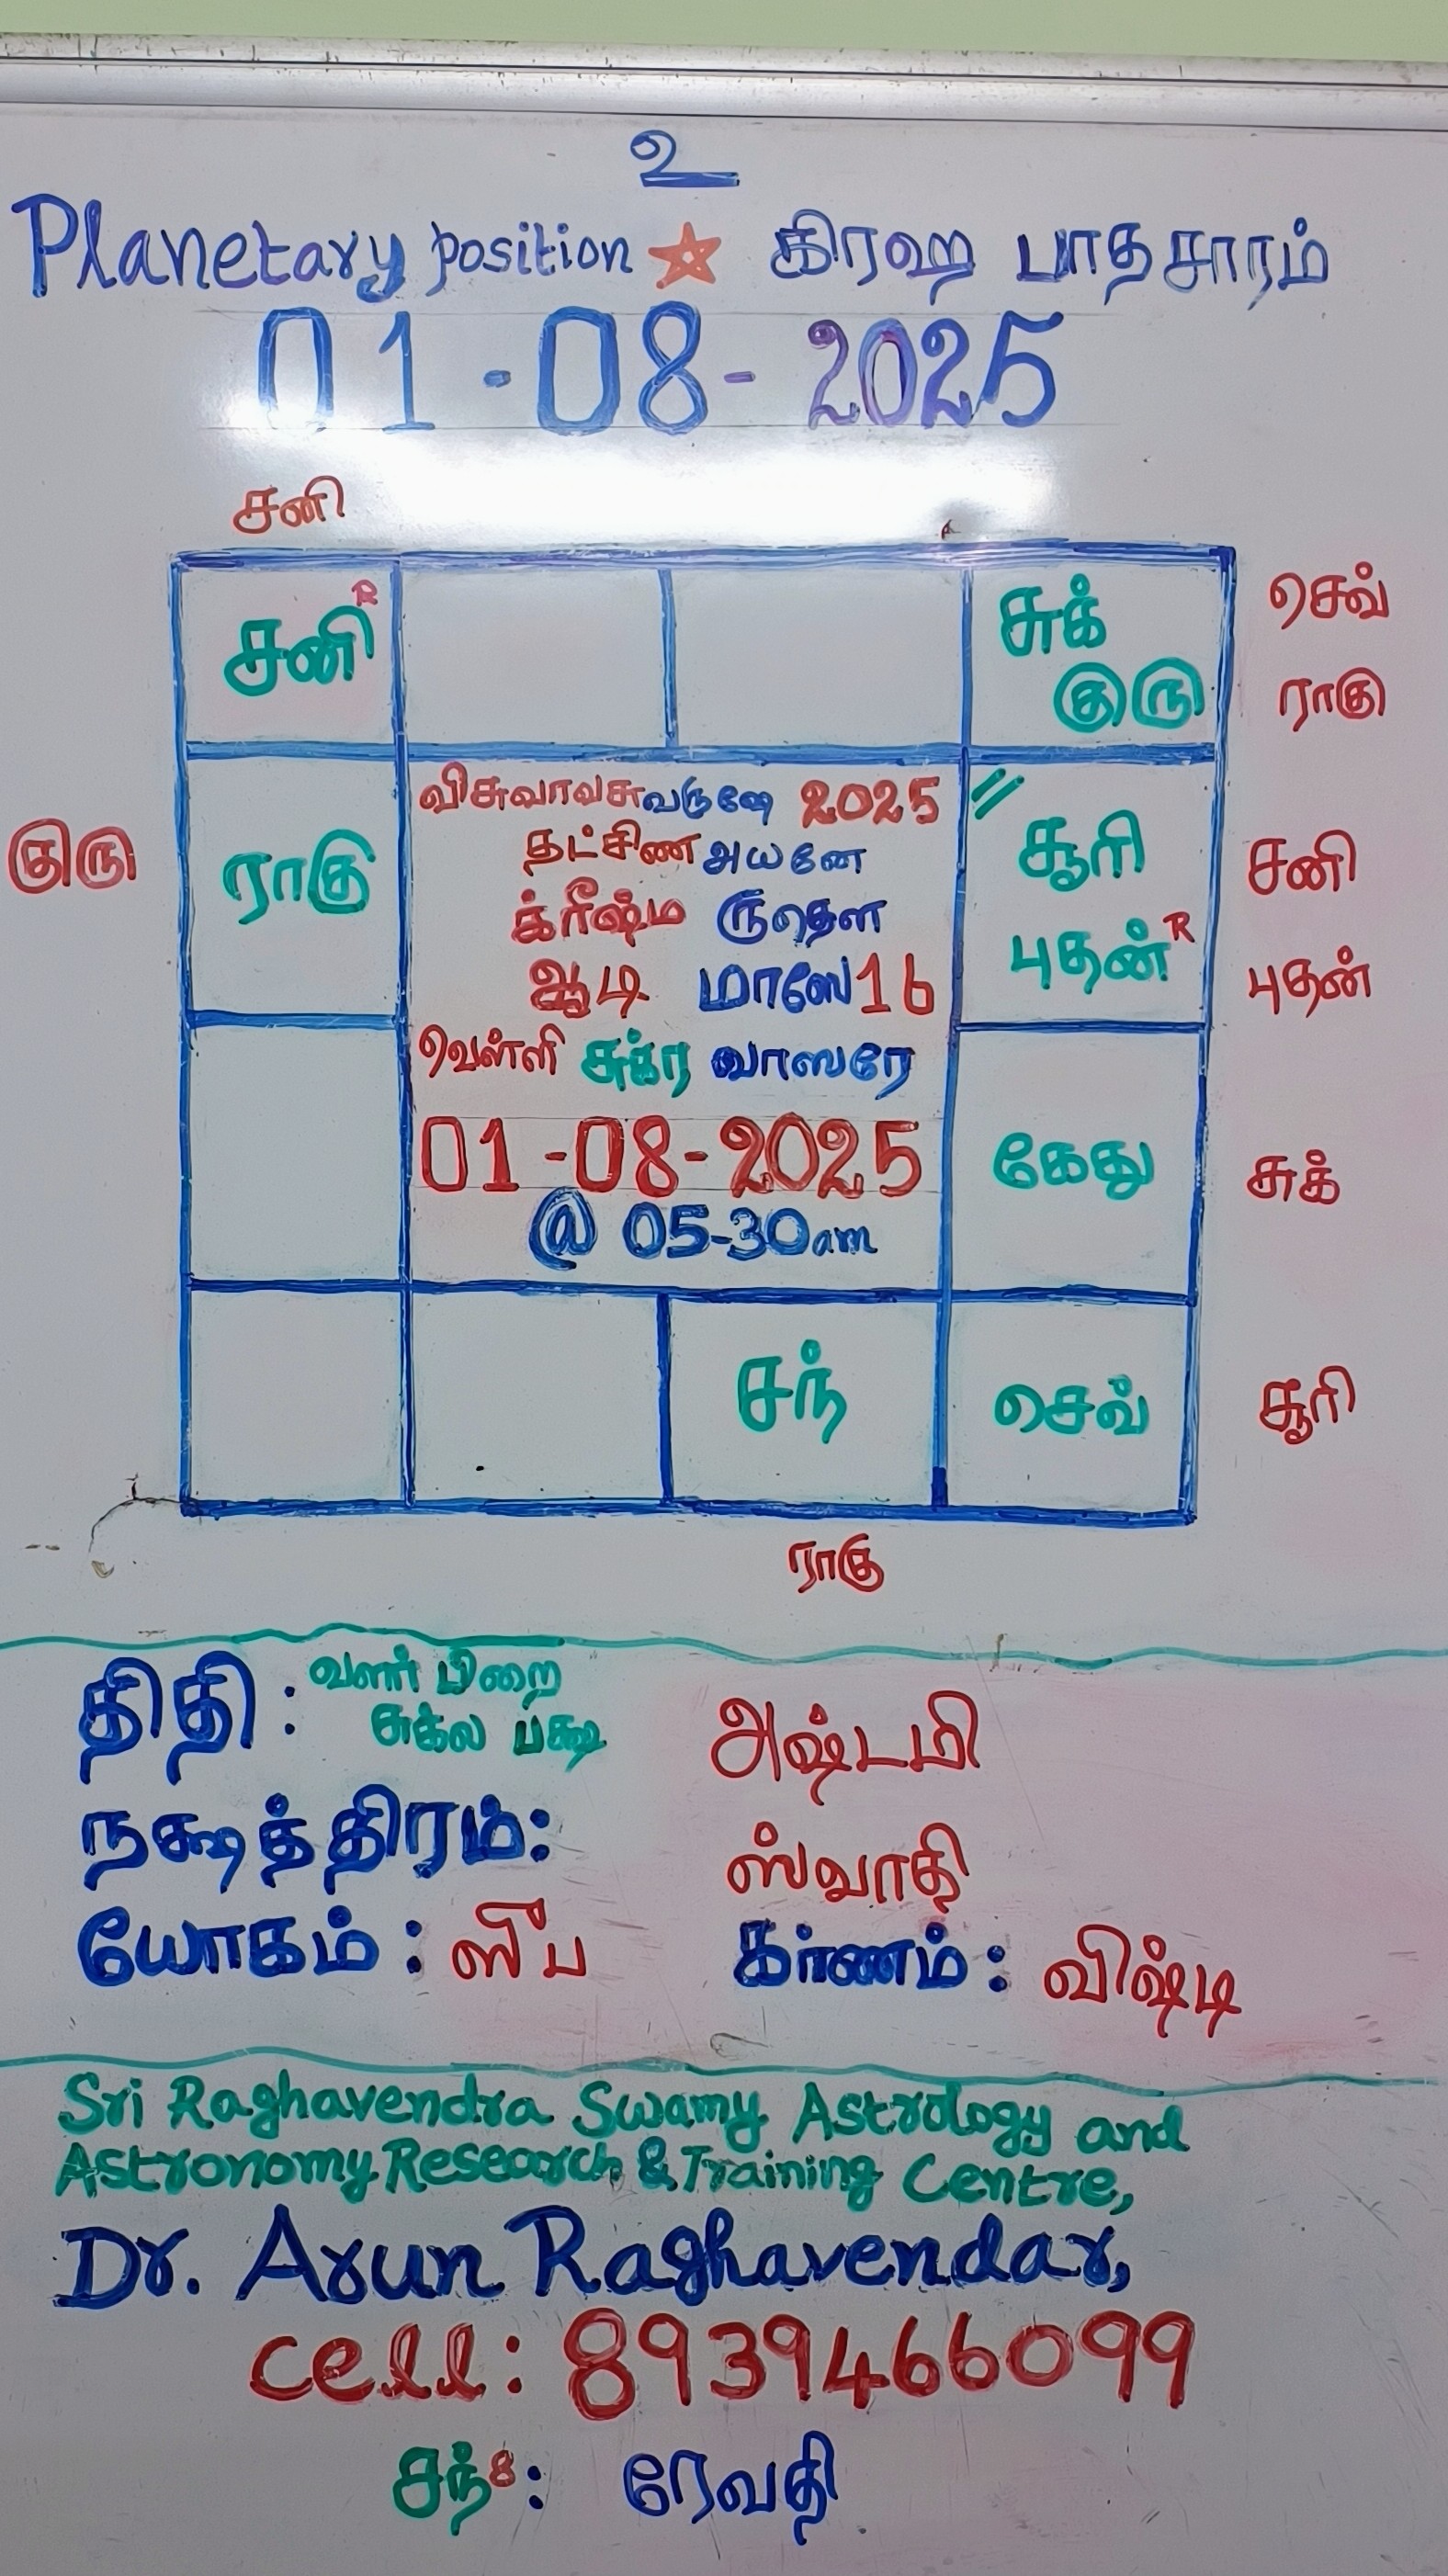 உ
Planetary position ☆ கிரஹ பாதசாரம்
01-08-2025
சனி
சனி R
சுக்
குரு
செவ்
ராகு
குரு
ராகு
விசுவாவசுவருஷே 2025
தட்சிண அயனே
க்ரீஷ்ம ருதௌ
ஆடி மாஸே 16
வெள்ளி சுக்ர வாஸரே
01-08-2025
@ 05-30am
//
சூரி
புதன் R
சனி
புதன்
கேது
சுக்
சந்
செவ்
சூரி
ராகு
திதி : வளர் பிறை
சுக்ல பக்ஷ
அஷ்டமி
நக்ஷத்திரம்:
ஸ்வாதி
யோகம் : ஸுப
கர்ணம் : விஷ்டி
Sri Raghavendra Swamy Astrology and
Astronomy Research & Training Centre,
Dr. Arun Raghavendar,
cell: 8939466099
சந் 8 : ரேவதி